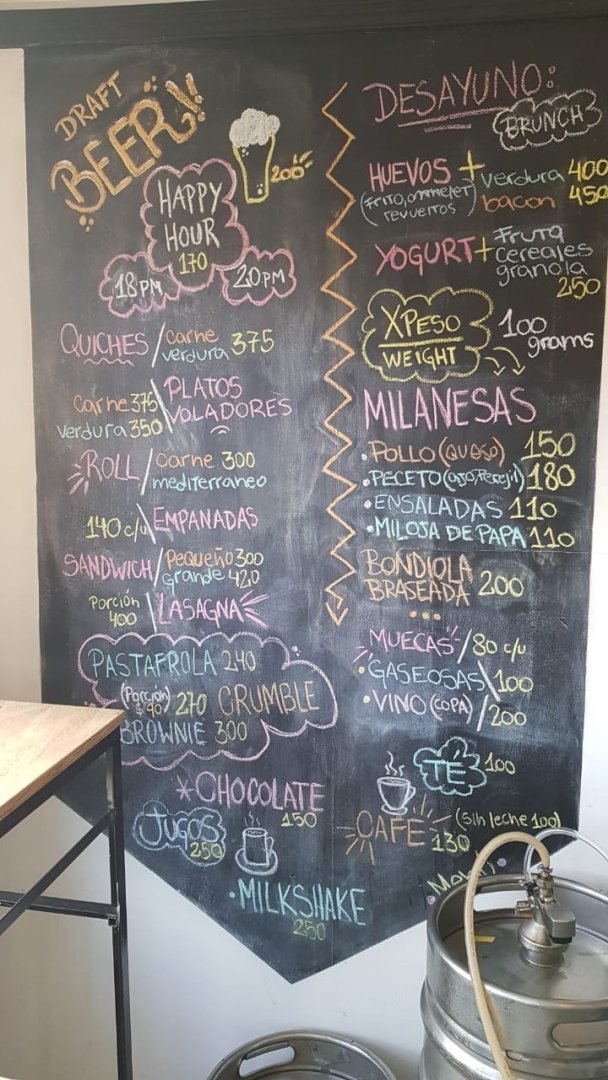 DRAFT
BEER!
200
HAPPY
HOUR
170
18PM 20PM
QUICHES / carne
verdura 375
carne 375 \ PLATOS
verdura 350 VOLADORES
ROLL / carne 300
mediterraneo
140 c/u \ EMPANADAS
SANDWICH / Pequeño 300
grande 420
Porción
400 \ LASAGNA
PASTAFROLA 240
(Porcion) 270 CRUMBLE
$90
BROWNIE 300
*CHOCOLATE
150
JUGOS
250
·MILKSHAKE
250
DESAYUNO:
BRUNCH
HUEVOS + verdura 400
(frito, ommelet bacon 450
revueltos)
YOGURT + Fruta
cereales
granola
250
XPESO 100
WEIGHT grams
MILANESAS
·POLLO (QUESO) 150
·PECETO (ajo, Perejil) 180
·ENSALADAS 110
·MILOJA DE PAPA 110
BONDIOLA
BRASEADA 200
...
MUECAS / 80 c/u
·GASEOSAS \ 100
·VINO (COPA) / 200
TÉ 100
CAFÉ (sin leche 100)
130